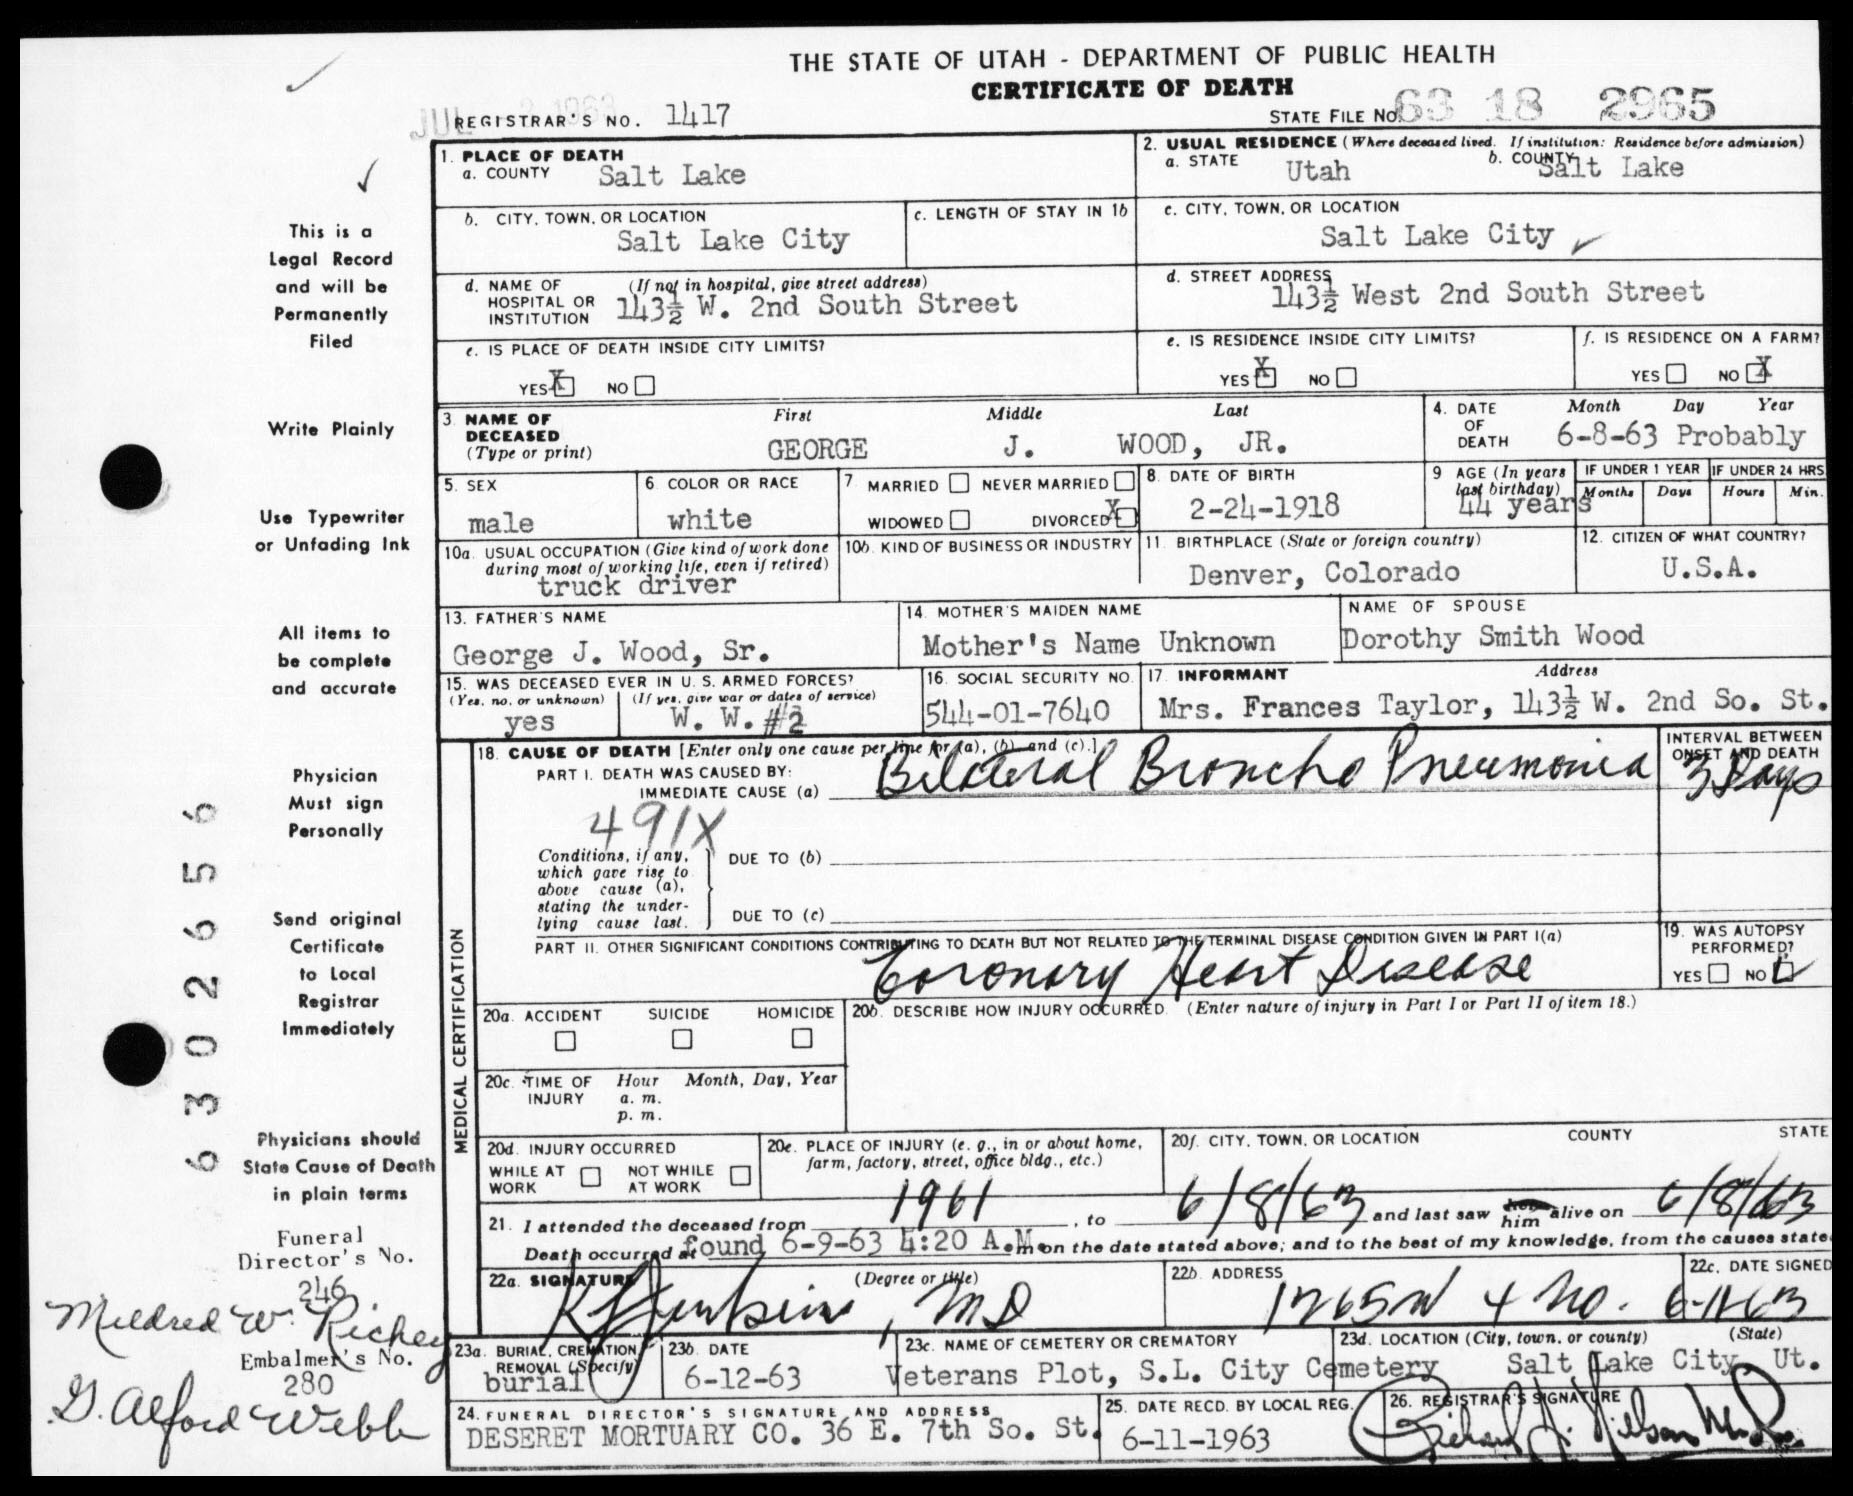 THE STATE OF UTAH - DEPARTMENT OF PUBLIC HEALTH
CERTIFICATE OF DEATH
JUL 2 1963
REGISTRAR'S NO. 1417
STATE FILE NO. 63 18 2965
1. PLACE OF DEATH
a. COUNTY Salt Lake
2. USUAL RESIDENCE (Where deceased lived. If institution: Residence before admission)
a. STATE Utah b. COUNTY Salt Lake
b. CITY, TOWN, OR LOCATION Salt Lake City
c. LENGTH OF STAY IN 1b
c. CITY, TOWN, OR LOCATION Salt Lake City
d. NAME OF HOSPITAL OR INSTITUTION (If not in hospital, give street address) 143½ W. 2nd South Street
d. STREET ADDRESS 143½ West 2nd South Street
e. IS PLACE OF DEATH INSIDE CITY LIMITS?
YES X NO
e. IS RESIDENCE INSIDE CITY LIMITS?
YES X NO
f. IS RESIDENCE ON A FARM?
YES NO X
3 NAME OF DECEASED (Type or print)
First Middle Last
GEORGE J. WOOD, JR.
4. DATE OF DEATH Month Day Year
6-8-63 Probably
5. SEX male
6 COLOR OR RACE white
7 MARRIED NEVER MARRIED
WIDOWED DIVORCED X
8. DATE OF BIRTH 2-24-1918
9 AGE (In years last birthday) 44 years
IF UNDER 1 YEAR Months Days
IF UNDER 24 HRS. Hours Min.
10a. USUAL OCCUPATION (Give kind of work done during most of working life, even if retired)
truck driver
10b. KIND OF BUSINESS OR INDUSTRY
11. BIRTHPLACE (State or foreign country)
Denver, Colorado
12. CITIZEN OF WHAT COUNTRY?
U.S.A.
13. FATHER'S NAME
George J. Wood, Sr.
14. MOTHER'S MAIDEN NAME
Mother's Name Unknown
NAME OF SPOUSE
Dorothy Smith Wood
15. WAS DECEASED EVER IN U. S. ARMED FORCES?
(Yes, no, or unknown) (If yes, give war or dates of service)
yes W. W. #2
16. SOCIAL SECURITY NO.
544-01-7640
17. INFORMANT Address
Mrs. Frances Taylor, 143½ W. 2nd So. St.
MEDICAL CERTIFICATION
18. CAUSE OF DEATH [Enter only one cause per line for (a), (b), and (c).]
PART I. DEATH WAS CAUSED BY:
IMMEDIATE CAUSE (a) Bilateral Broncho Pneumonia
INTERVAL BETWEEN ONSET AND DEATH
3 Days
491X
Conditions, if any, which gave rise to above cause (a), stating the underlying cause last.
DUE TO (b)
DUE TO (c)
PART II. OTHER SIGNIFICANT CONDITIONS CONTRIBUTING TO DEATH BUT NOT RELATED TO THE TERMINAL DISEASE CONDITION GIVEN IN PART I(a)
Coronary Heart Disease
19. WAS AUTOPSY PERFORMED?
YES NO
20a. ACCIDENT SUICIDE HOMICIDE
20b. DESCRIBE HOW INJURY OCCURRED. (Enter nature of injury in Part I or Part II of item 18.)
20c. TIME OF INJURY Hour Month, Day, Year
a. m.
p. m.
20d. INJURY OCCURRED
WHILE AT WORK NOT WHILE AT WORK
20e. PLACE OF INJURY (e. g., in or about home, farm, factory, street, office bldg., etc.)
20f. CITY, TOWN, OR LOCATION COUNTY STATE
21. I attended the deceased from 1961, to 6/8/63 and last saw him alive on 6/8/63
Death occurred at found 6-9-63 4:20 A.M. m on the date stated above; and to the best of my knowledge, from the causes state
22a. SIGNATURE (Degree or title)
, MD
22b. ADDRESS
1765 W 4 No.
22c. DATE SIGNED
6-11-63
23a. BURIAL, CREMATION, REMOVAL (Specify)
burial
23b. DATE
6-12-63
23c. NAME OF CEMETERY OR CREMATORY
Veterans Plot, S.L. City Cemetery
23d. LOCATION (City, town, or county) (State)
Salt Lake City, Ut.
24. FUNERAL DIRECTOR'S SIGNATURE AND ADDRESS
DESERET MORTUARY CO. 36 E. 7th So. St.
25. DATE RECD. BY LOCAL REG.
6-11-1963
26. REGISTRAR'S SIGNATURE
Richard H. Nielson
This is a
Legal Record
and will be
Permanently
Filed
Write Plainly
Use Typewriter
or Unfading Ink
All items to
be complete
and accurate
Physician
Must sign
Personally
Send original
Certificate
to Local
Registrar
Immediately
Physicians should
State Cause of Death
in plain terms
Funeral
Director's No.
246
Mildred W. Richey
Embalmer's No.
280
G. Alford Webb
6302656